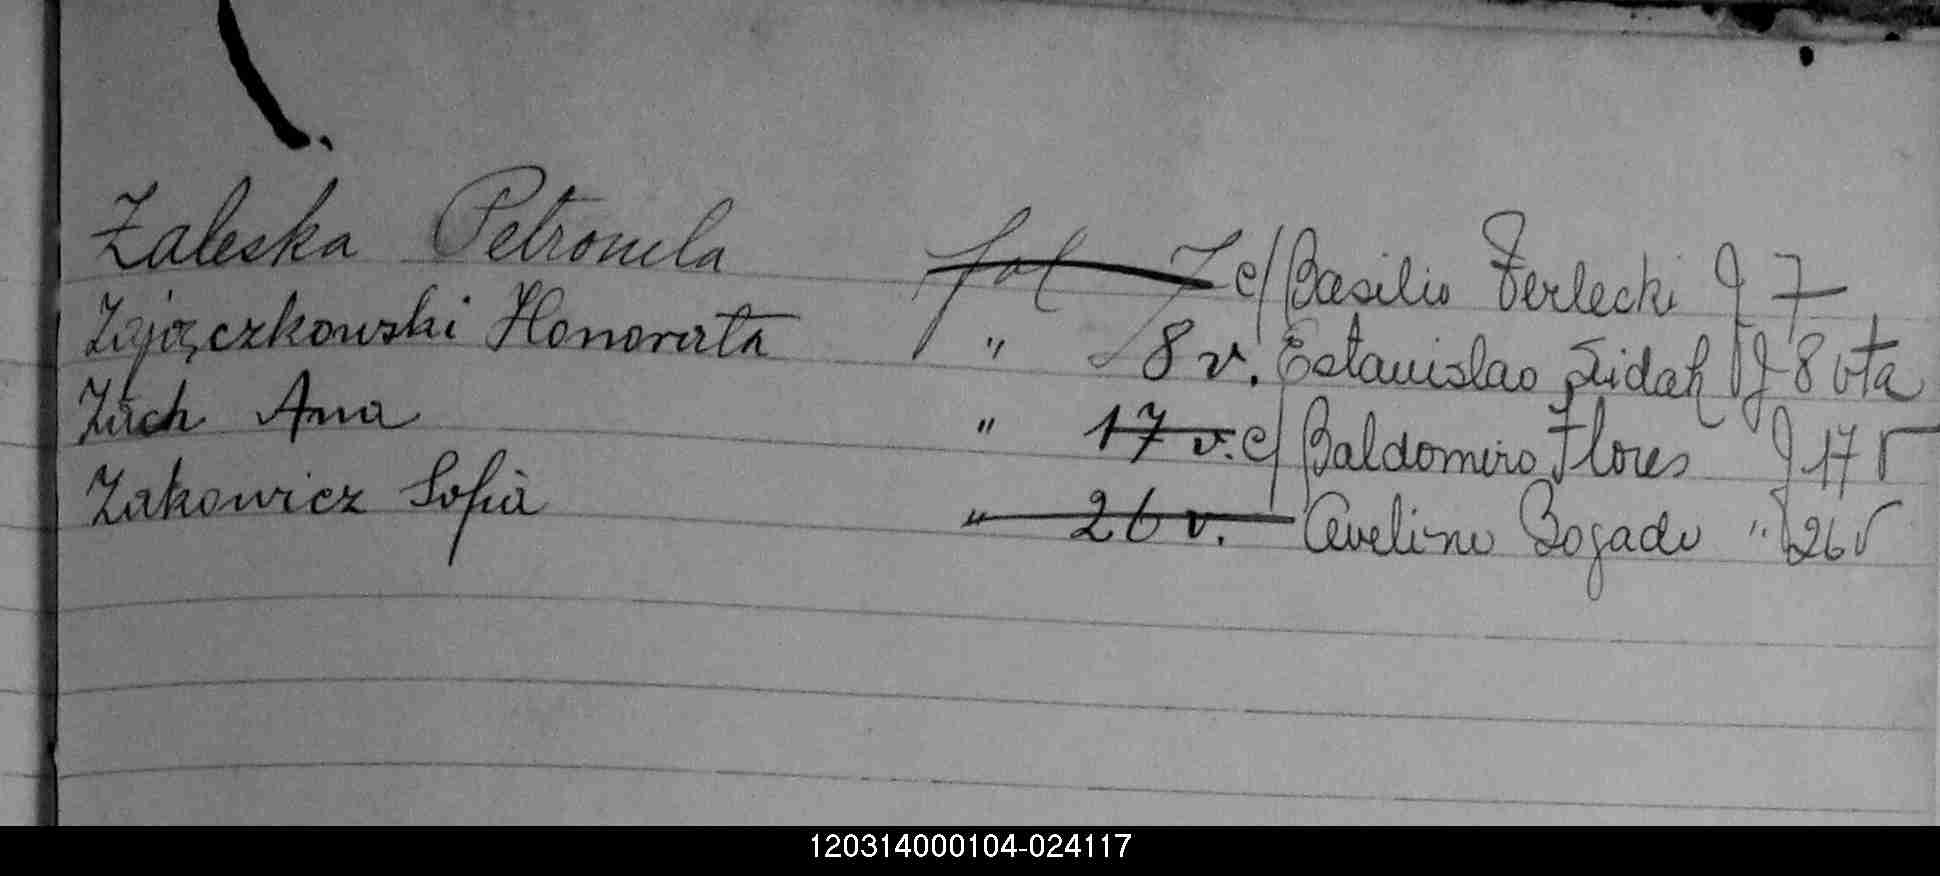 Zaleska Petronela fol 7 c/ Basilio Ferlecki f 7
Zajączkowski Honorata " 8 v. Estanislao Zidak f 8 vta
Zach Ana " 17 v. c/ Baldomero Flores f 17 v
Zakowicz Sofia " 26 v. Avelino Bogado " 26 v
120314000104-024117